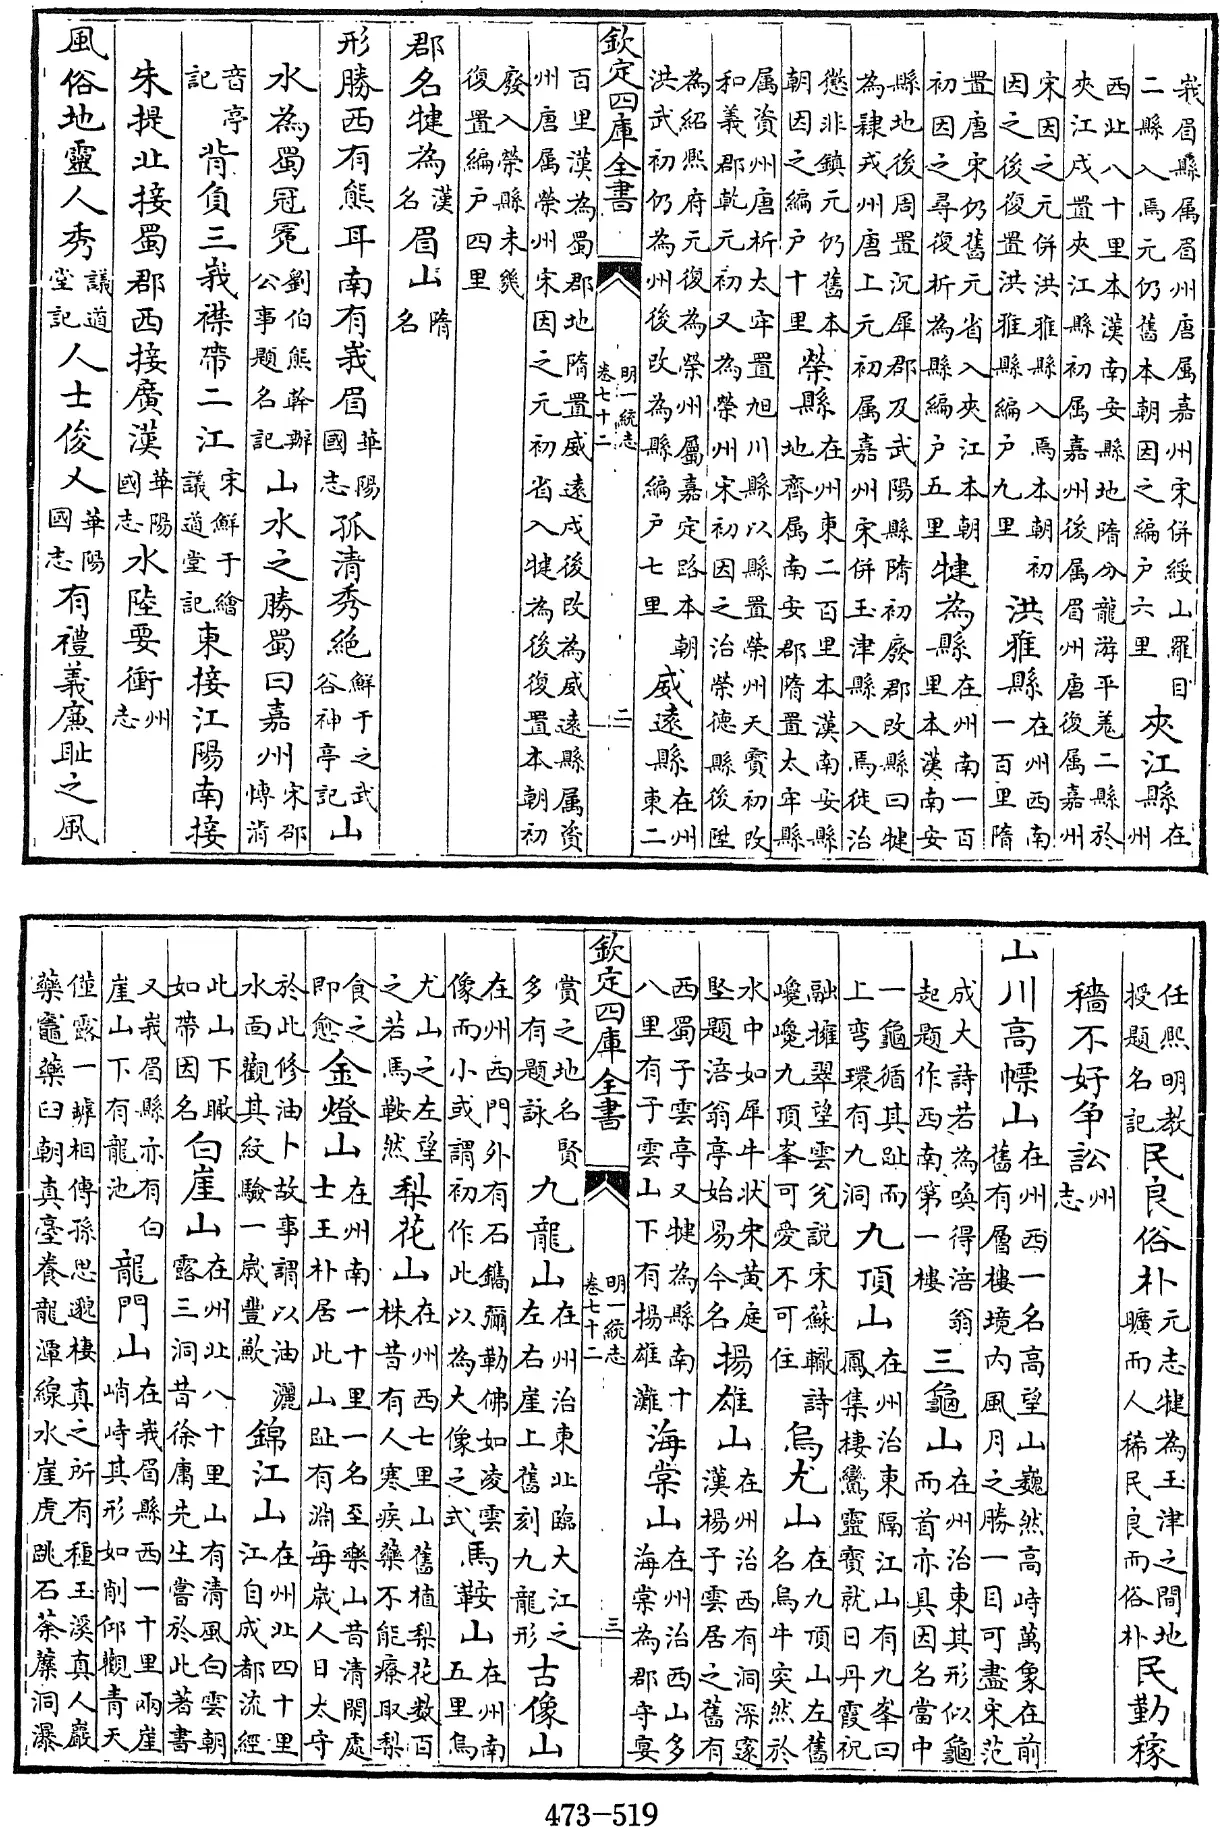 峩眉縣属眉州唐属嘉州宋併綏山羅目二縣入焉元仍舊本朝因之編戶六里夾江縣在州
西北八十里本漢南安縣地隋分龍游平羗二縣於夾江戍置夾江縣初属嘉州後属眉州唐復属嘉州
宋因之元併洪雅縣入焉本朝初因之後復置洪雅縣編戶九里洪雅縣在州西南一百里隋
置唐宋仍舊元省入夾江本朝初因之尋復析為縣編戶五里犍為縣在州南一百里本漢南安
縣地後周置沉犀郡及武陽縣隋初廢郡改縣曰犍為隸戎州唐上元初属嘉州宋併玉津縣入焉徙治
懲非鎮元仍舊本朝因之編戶十里榮縣在州東二百里本漢南安縣地齊属南安郡隋置太牢縣
属資州唐析太牢置旭川縣以縣置榮州天寳初改和義郡乾元初又為榮州宋初因之治榮德縣後陞
為紹熙府元復為榮州屬嘉定路本朝洪武初仍為州後改為縣編戶七里威遠縣在州東二
欽定四庫全書 明一統志 卷七十二 二
百里漢為蜀郡地隋置威遠戍後改為威遠縣属資州唐属榮州宋因之元初省入犍為後復置本朝初
廢入榮縣未幾復置編戶四里
郡名犍為漢名眉山隋名
形勝西有熊耳南有峩眉華陽國志孤清秀絶鮮于之武谷神亭記山
水為蜀冠冕劉伯熊幹辦公事題名記山水之勝蜀曰嘉州宋邵博淯
音亭記背負三峩襟帶二江宋鮮于繪議道堂記東接江陽南接
朱提北接蜀郡西接廣漢華陽國志水陸要衝州志
風俗地靈人秀議道堂記人士俊乂華陽國志有禮義廉耻之風
任熙明教授題名記民良俗朴元志犍為玉津之間地曠而人稀民良而俗朴民勤稼
穡不好争訟州志
山川高幖山在州西一名高望山巍然高峙萬象在前舊有層樓境内風月之勝一目可盡宋范
成大詩若為喚得涪翁起題作西南第一樓三龜山在州治東其形似龜而首亦具因名當中
一龜循其趾而上彎環有九洞九頂山在州治東隔江山有九峯曰鳳集棲鸞靈寳就日丹霞祝
融擁翠望雲兊說宋蘇轍詩巉巉九頂峯可愛不可住烏尤山在九頂山左舊名烏牛突然於
水中如犀牛狀宋黃庭堅題涪翁亭始易今名揚雄山在州治西有洞深邃漢楊子雲居之舊有
西蜀子雲亭又犍為縣南十八里有子雲山下有揚雄灘海棠山在州治西山多海棠為郡守宴
欽定四庫全書 明一統志 卷七十二 三
賞之地名賢多有題詠九龍山在州治東北臨大江之左右崖上舊刻九龍形古像山
在州西門外有石鐫彌勒佛如凌雲像而小或謂初作此以為大像之式馬鞍山在州南五里烏
尤山之左望之若馬鞍然梨花山在州西七里山舊植梨花数百株昔有人寒疾藥不能療取梨
食之即愈金燈山在州南一十里一名至樂山昔清閑處士王朴居此山趾有淵每歲人日太守
於此修油卜故事謂以油灑水面觀其紋驗一歲豐歉錦江山在州北四十里江自成都流經
此山下瞰如帶因名白崖山在州北八十里山有清風白雲朝露三洞昔徐庸先生嘗於此著書
又峩眉縣亦有白崖山下有龍池龍門山在峩眉縣西一十里兩崖峭峙其形如削仰觀青天
僅露一罅相傳孫思邈棲真之所有種玉溪真人巖藥竈藥臼朝真臺養龍潭線水崖虎跳石荼䕷洞瀑
473-519